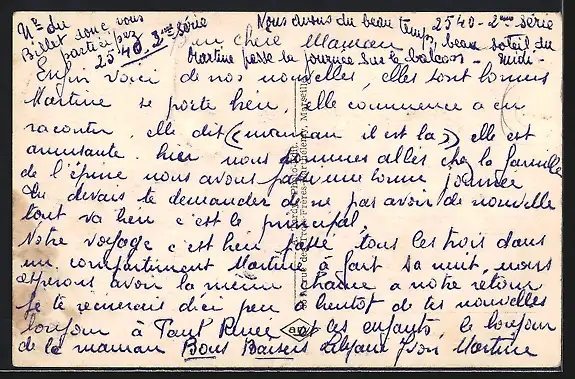 Nº du Billet dont vous participez
2540. 3ème série
Nous avons du beau temps, beau soleil du midi -
2540 - 2ème série
Martine passe la journée sur le balcon -
Bien chère Maman
Enfin voici de nos nouvelles, elles sont bonnes
Martine se porte bien, elle commence a en
raconter. elle dit (maman il est là) elle est
amusante. hier nous sommes allés chez la famille
de l'épine nous avons passé une bonne journée
Tu devais te demander de ne pas avoir de nouvelle
tout va bien c'est le principal.
Notre voyage c'est bien passé, tous les trois dans
un compartiment Martine à fait sa nuit, nous
esperons avoir la même chance a notre retour
Je te recrierais dici peu a bientot de tes nouvelles
bonjour à Paul Renée et les enfants, le bonjour
de la maman Bons Baisers Liliane Yvon Martine
Marseille